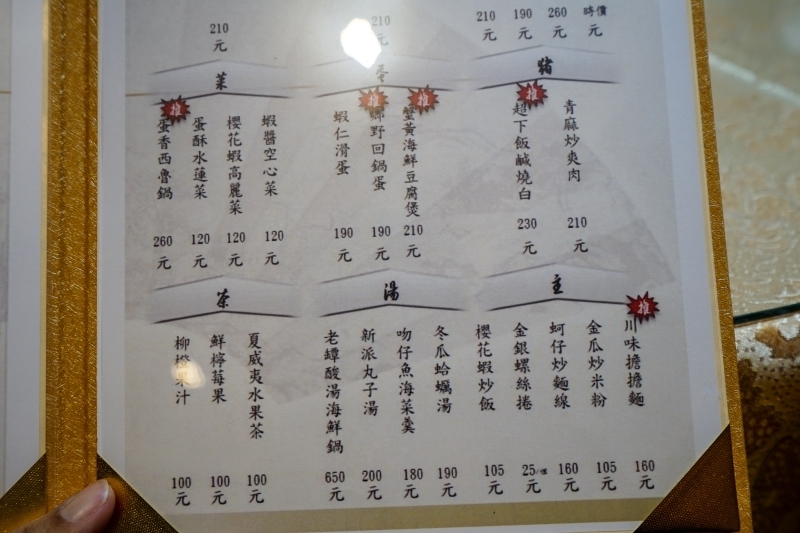 時價
元
260
元
190
元
210
元
210
元
210
元
豬
青麻炒爽肉
210
元
推
超下飯鹹燒白
230
元
蛋
推
蟹黃海鮮豆腐煲
210
元
推
鄉野回鍋蛋
190
元
蝦仁滑蛋
190
元
菜
蝦醬空心菜
120
元
櫻花蝦高麗菜
120
元
蛋酥水蓮菜
120
元
推
蛋香西魯鍋
260
元
主
推
川味擔擔麵
160
元
金瓜炒米粉
105
元
蚵仔炒麵線
160
元
金銀螺絲捲
25/個
元
櫻花蝦炒飯
105
元
湯
冬瓜蛤蠣湯
190
元
吻仔魚海菜羹
180
元
新派丸子湯
200
元
老罈酸湯海鮮鍋
650
元
茶
夏威夷水果茶
100
元
鮮檸莓果
100
元
柳橙果汁
100
元